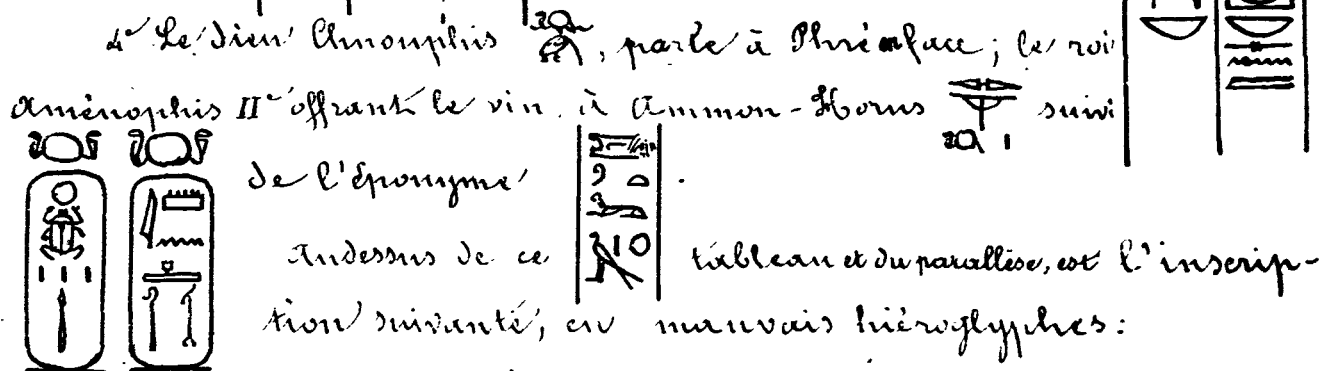 4° Le Dieu Chnouphis , parle à Phré enface; le roi
Aménophis II° offrant le vin à Ammon-Horus suivi
de l'Éponyme .
Audessus de ce tableau et du parallèle, est l'inscrip-
tion suivante, en mauvais hiéroglyphes: